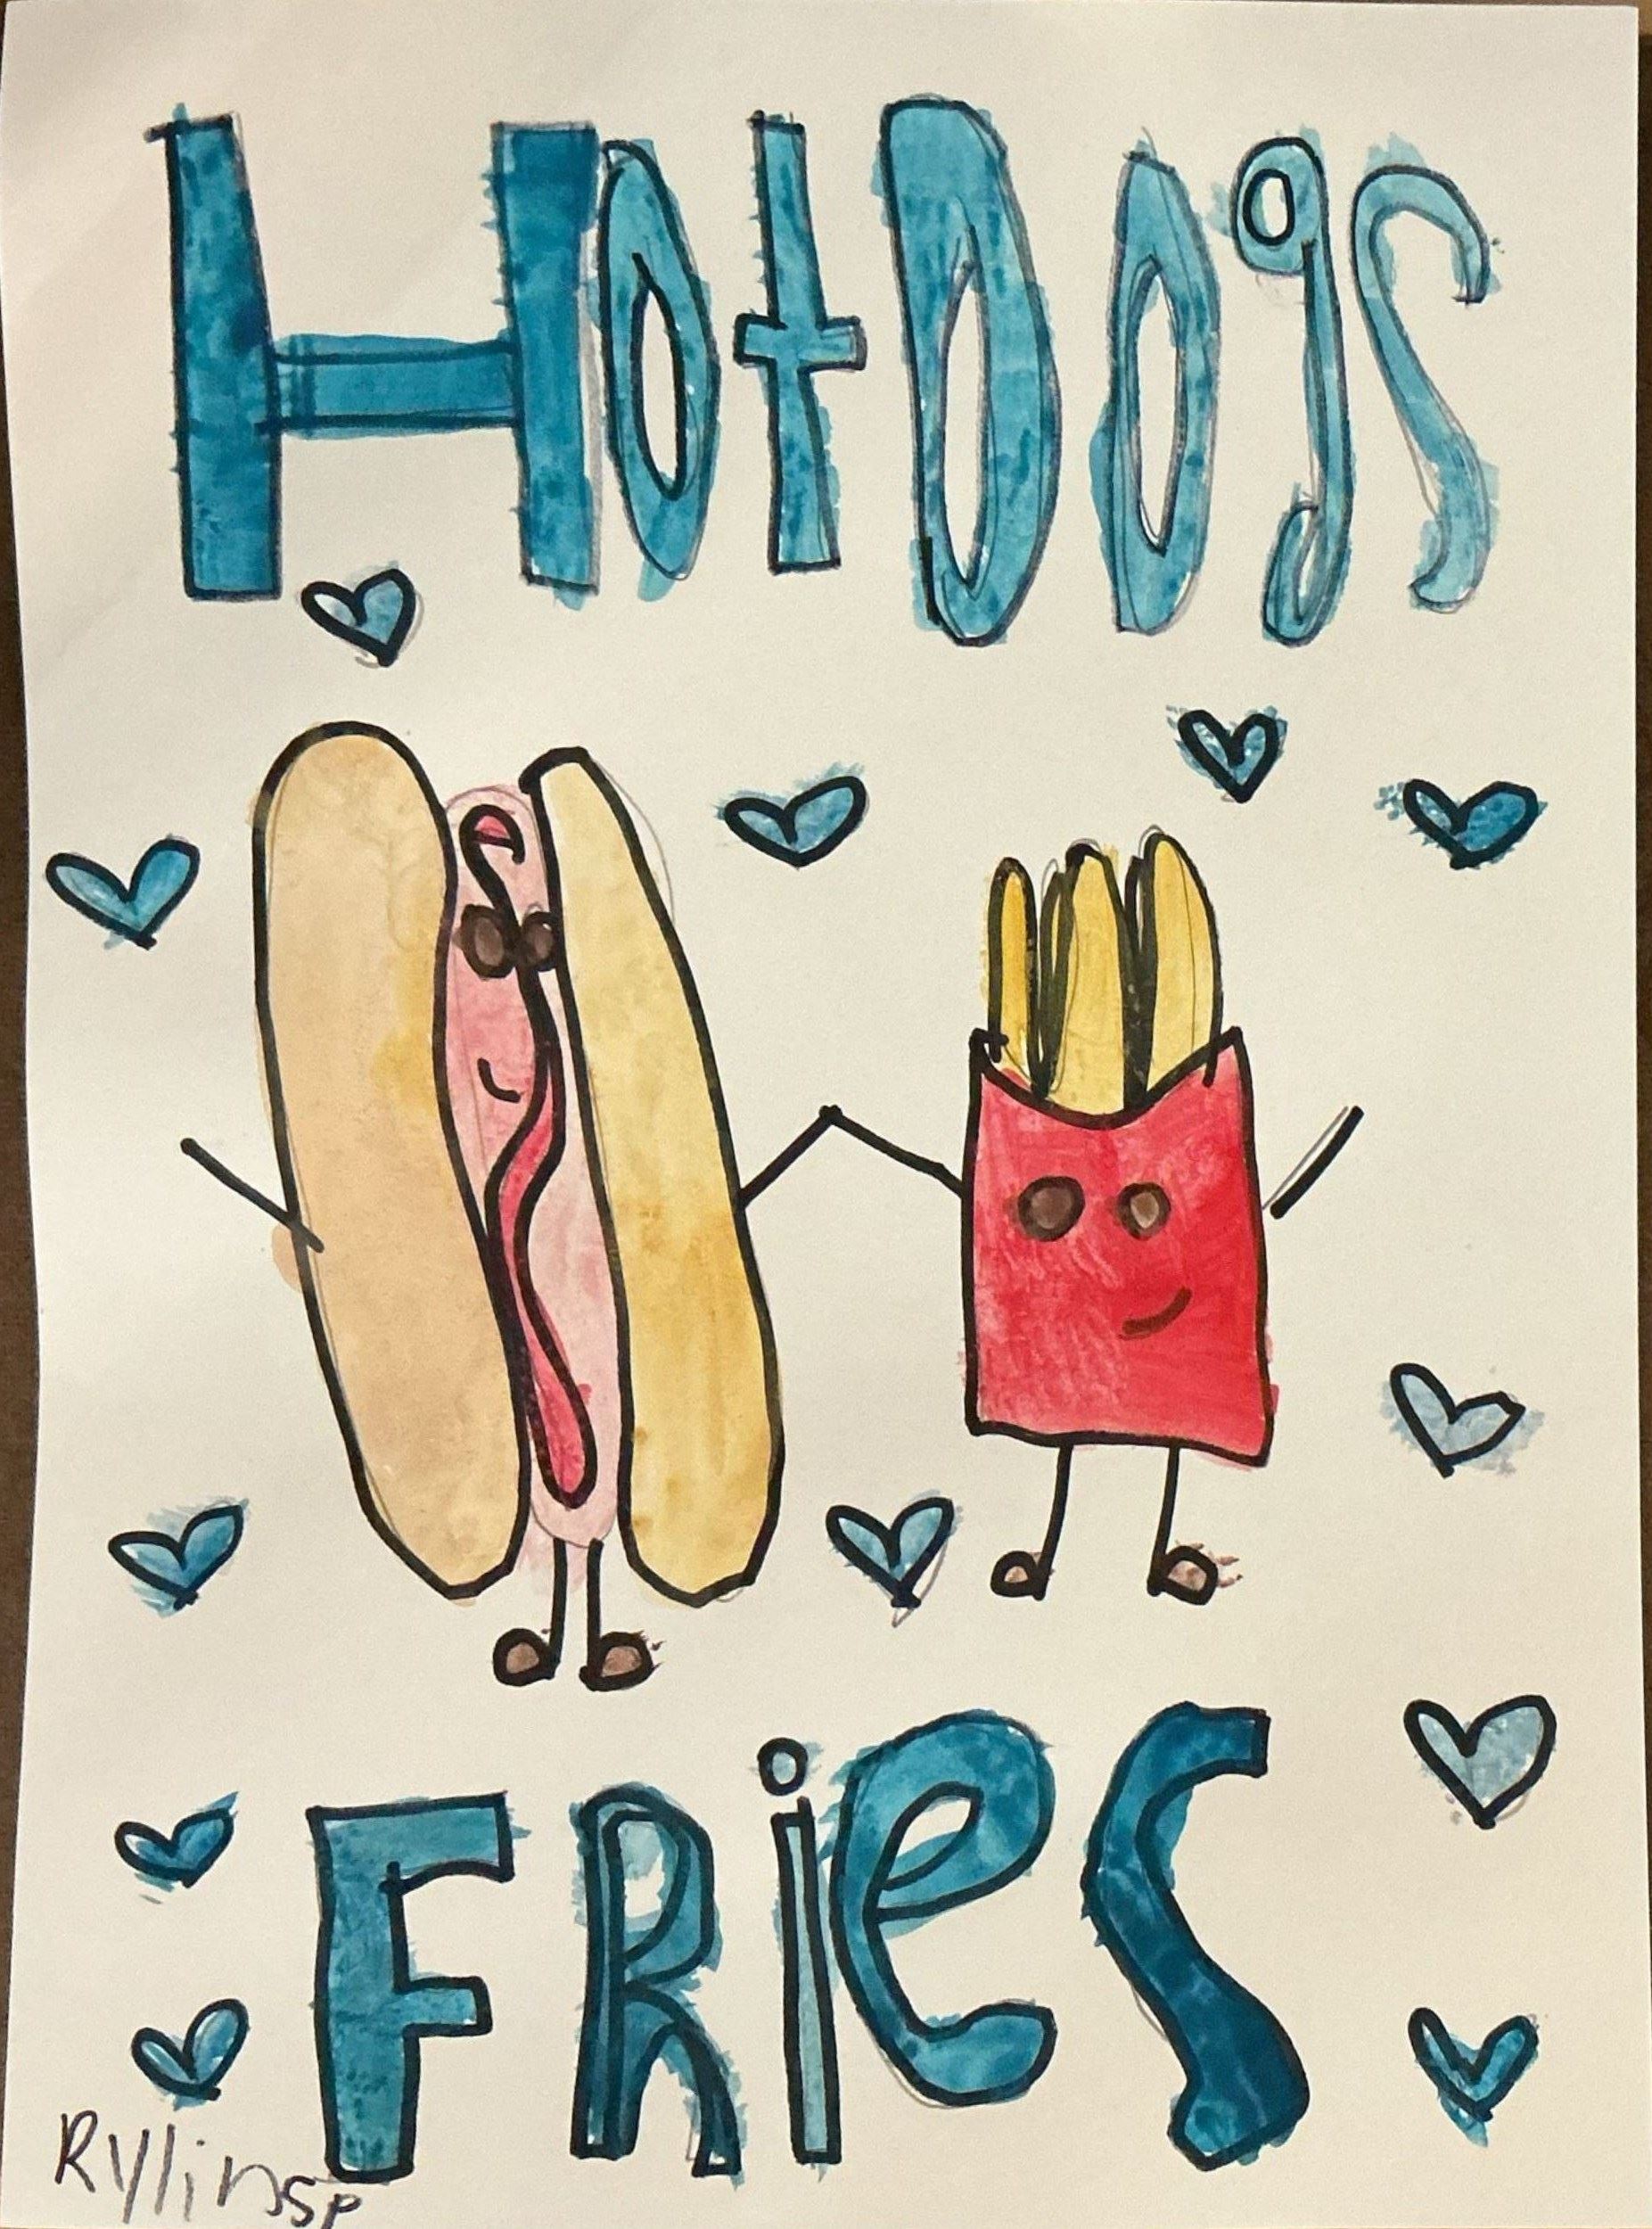 HotDogs
FRieS
Rylinsp